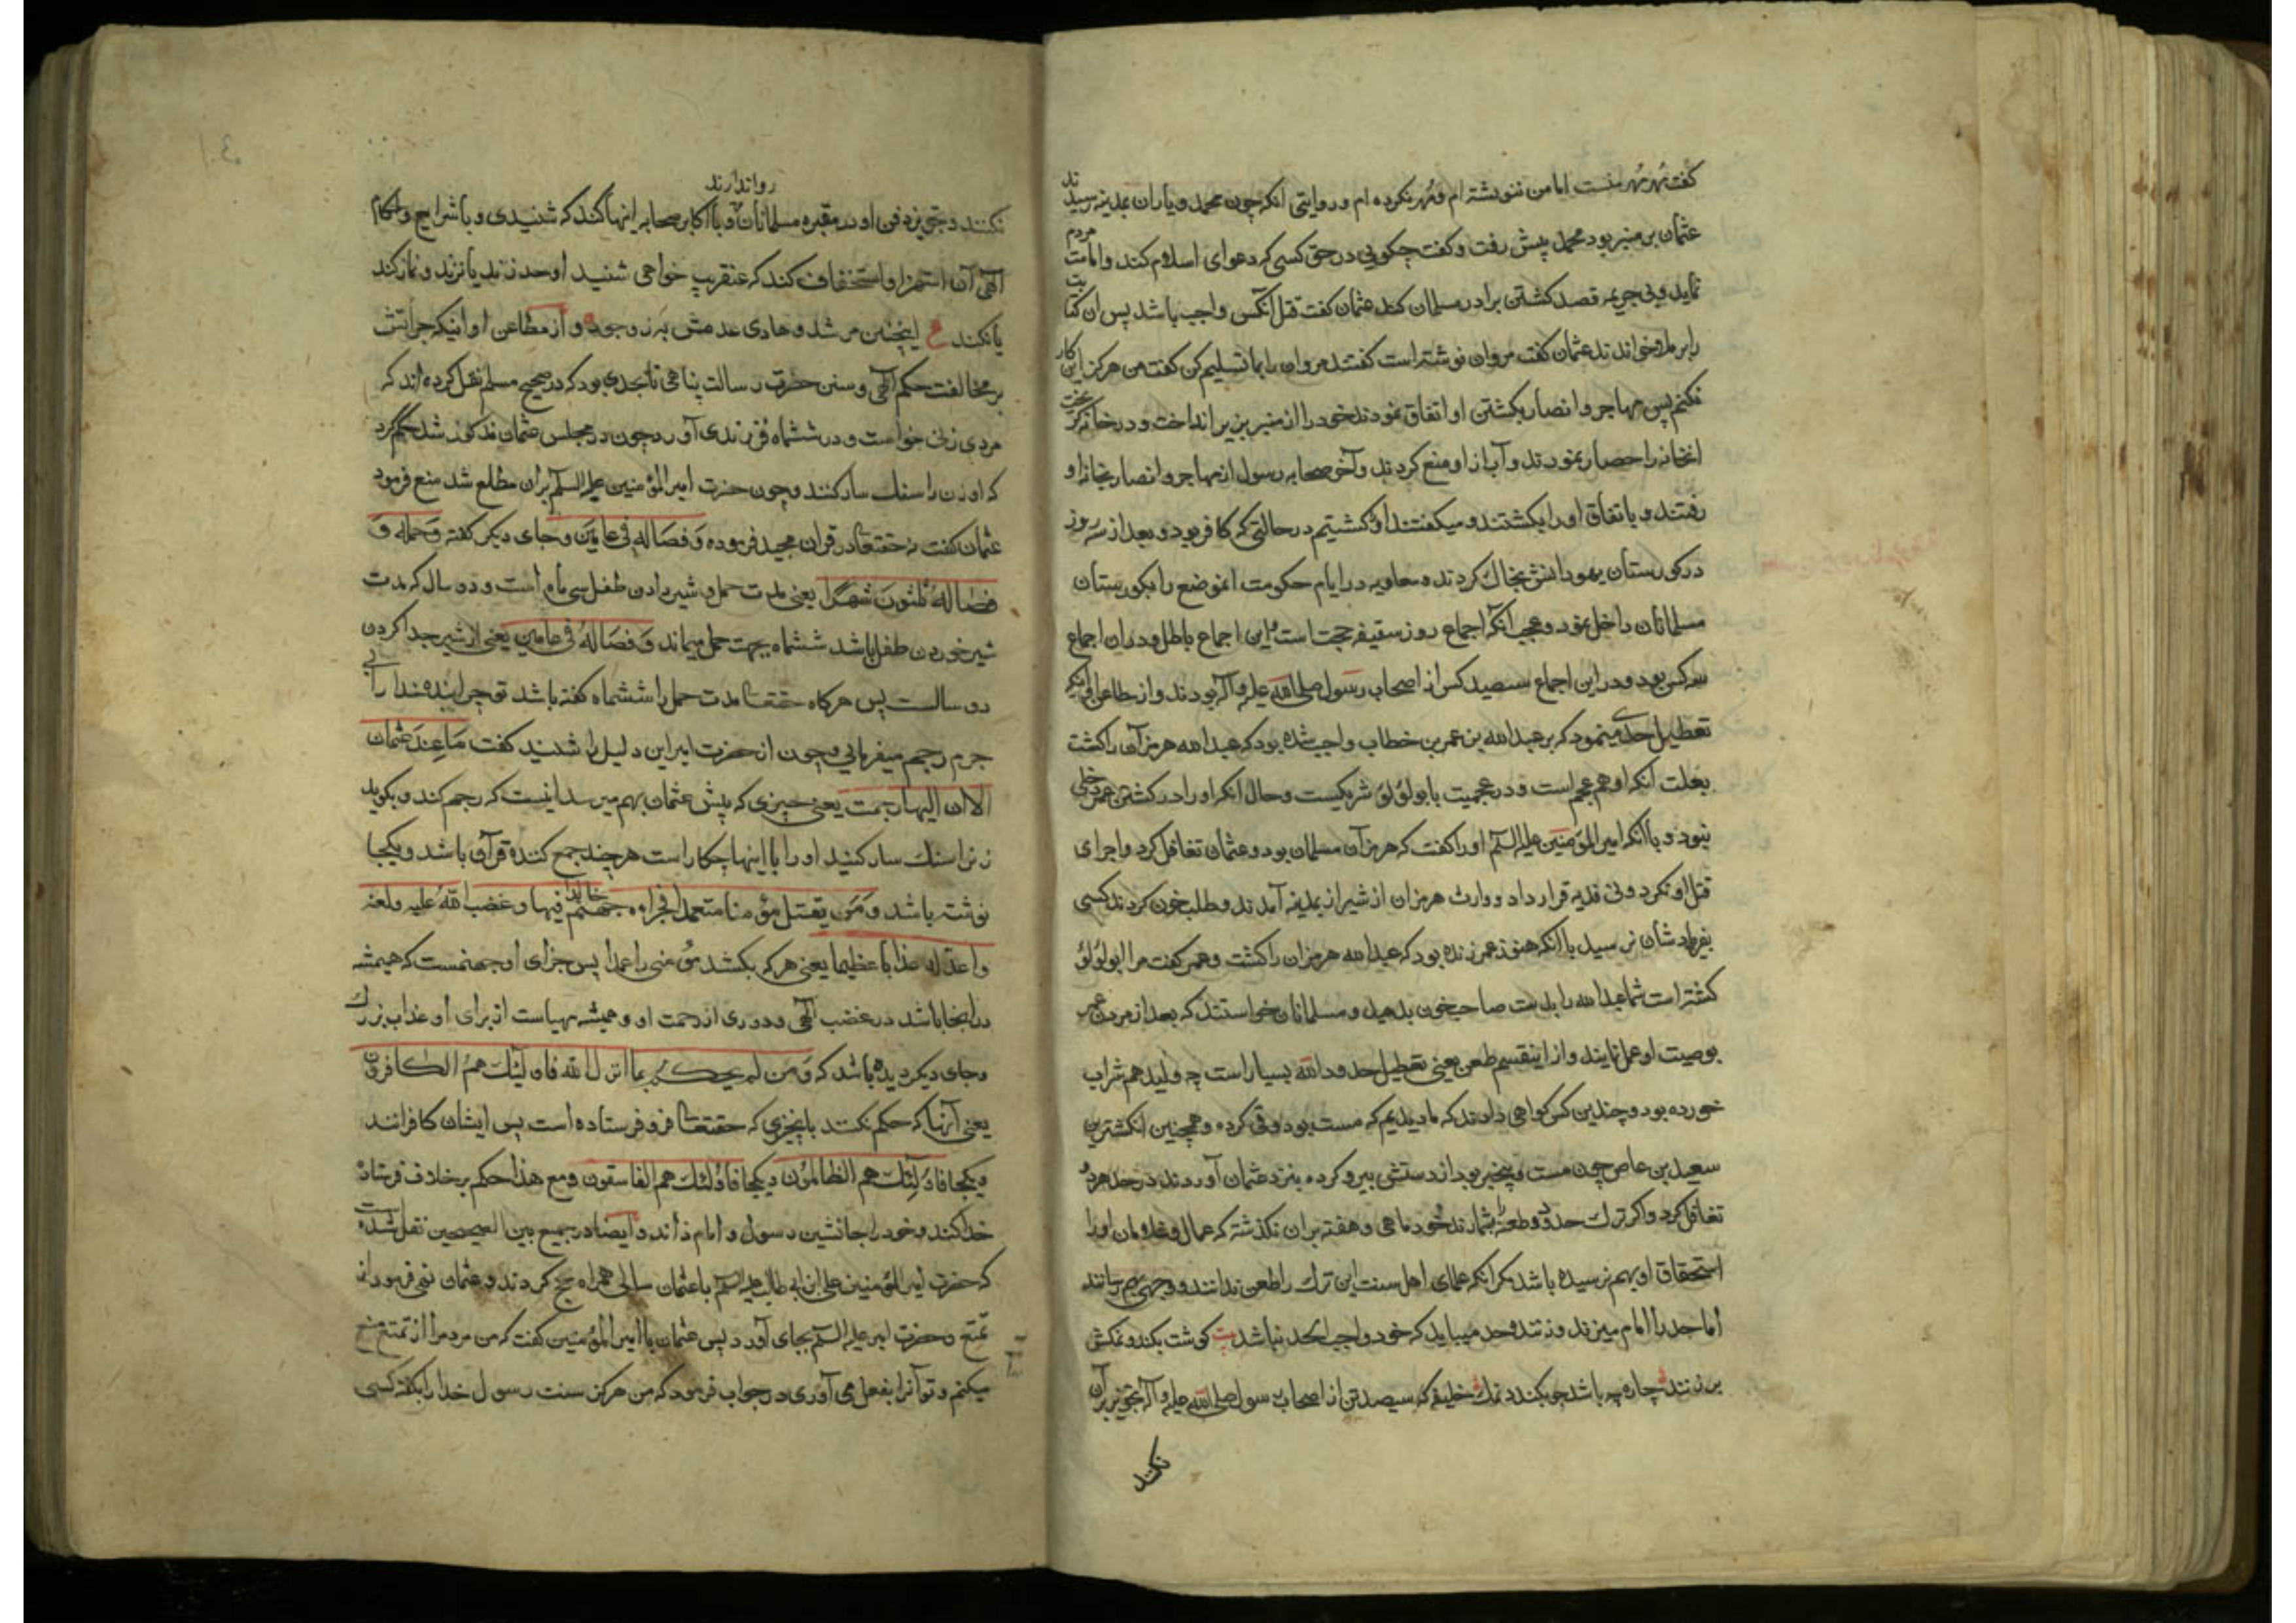 گفت مهر مهر منست اما من ننوشته ام و مهر نکرده ام و روایتی آنکه چون محمد و یاران بمدینه رسیدند
عثمان بر منبر بود محمد پیش رفت و گفت چگویی در حق کسی که دعوای اسلام کند و امامت مردم
نماید و بی جریمه قصد کشتن برادر مسلمان کند عثمان گفت قتل آنکس واجب باشد پس ان کتابت
را بر ملا خواندند عثمان گفت مروان نوشته است گفتند مروان را بما تسلیم کن گفت من هرگز این کار
نکنم پس مهاجر و انصار بکشتن او اتفاق نمودند خود را از منبر بزیر انداخت و در خانه گریخت
انخانه را حصار نمودند و آب از او منع کردند و آخر صحابه رسول از مهاجر و انصار بخانه او
رفتند و باتفاق او را بکشتند و میگفتند او را کشتیم در حالتی که کافر بود و بعد از سه روز
در گورستان یهود انش بخاک کردند و معاویه در ایام حکومت انموضع را بگورستان
مسلمانان داخل نمود و عجب آنکه اجماع روز سقیفه حجت است و این اجماع باطل و در ان اجماع
سه کس بود و در این اجماع سیصد کس از اصحاب رسول صلی الله علیه و آله بودند و از مطاعن او اینکه
تعطیل حدی مینمود که بر عبدالله بن عمر بن خطاب واجب شده بود که عبدالله هرمزان را کشت
بعلت آنکه او هم عجم است و در عجمیت با بولؤلؤ شریکست و حال آنکه او را در کشتن عمر دخلی
نبود و با آنکه امیر المؤمنین علیه السلم او را گفت که هرمزان مسلمان بود و عثمان تغافل کرد و اجرای
قتل او نکرد و نی فدیه قرار داد و وارث هرمزان از شیراز بمدینه آمدند و طلب خون کردند کسی
بفریادشان نرسید با آنکه هنوز عمر زنده بود که عبدالله هرمزان را کشت و عمر گفت مرا ابولؤلؤ
کشته است شما عبدالله را بدست صاحب خون بدهید و مسلمانان خواستند که بعد از مردن عمر
بوصیت او عمل نمایند و از اینقسم طعن یعنی تعطیل حدود الله بسیار است چه ولید هم شراب
خورده بود و چندین کس گواهی دادند که ما دیدیم که مست بود و قی کرده و همچنین انگشترین
سعید بن عاص چون مست و بیخبر بود از دستش بیرو کرده بنزد عثمان آوردند در حد هر دو
تغافل کرد و اگر ترک حدود و طعنها بشمارند خود ماهی و هفته بران نگذشته که عمال و غلامان او را
استحقاق او بهم نرسیده باشد مگر آنکه علمای اهل سنت این ترک را طعن ندانند و وجهی بهم رسانند
اما حد را امام میزند و زننده حد میباید که خود واجب الحد نباشد بیت گوشت بگندد نمکش
بر زنند چاره چه باشد چو بگندد نمک خلیفه که سیصد تن از اصحاب رسول صلی الله علیه و آله تجویز بر آن
نکنند
نکنند و تجویز دفن او در مقبره مسلمانان روا ندارند و با اکابر صحابه اینها کند که شنیدی و با شرایع و احکام
آلهی آن استهزا و استخفاف کند که عنقریب خواهی شنید او حد زند یا نزند و نماز کند
یا نکند ع اینچنین مرشد و هادی عدمش به ز وجود و از مطاعن او اینکه جراتش
بر مخالفت حکم آلهی و سنن حضرت رسالت پناهی تا بحدی بود که در صحیح مسلم نقل کرده اند که
مردی زنی خواست و در ششماه فرزندی آورد چون در مجلس عثمان مذکور شد حکم کرد
که او زن را سنگ سار کنند و چون حضرت امیر المؤمنین علیه السلم بران مطلع شد منع فرمود
عثمان گفت نه حقتعا در قران مجید فرموده وَفصاله فی عامین و جای دیگر گفته وَحمله وَ
فصاله ثلثون شهرا یعنی مدت حمل و شیر دادن طفل سی ماه است و دو سال که مدت
شیر خوردن طفل باشد ششماه بجهت حمل میماند وَفصاله فی عامین یعنی از شیر جدا کردن
دو سالست پس هرگاه حقتعا مدت حمل را ششماه گفته باشد تو چرا بنده خدا را بی
جرم رجم میفرمایی و چون از حضرت امیر این دلیل را شنید گفت ما عند عثمان
الا ان الیها رجمت یعنی چیزی که پیش عثمان بهم میرسد اینست که رجم کند و بگوید
زن را سنگ سار کنید او را با اینها چکار است هر چند جمع کننده قرآن باشد و یکجا
نوشته باشد وَمَن یقتل مؤمنا متعمدا فجزاءه جهنم خالدا فیها و غضب الله علیه ولعنه
واعد له عذابا عظیما یعنی هر که بکشد مؤمنی را عمدا پس جزای او جهنمست که همیشه
در انجا باشد در غضب آلهی و دوری از رحمت او و همیشه مهیاست از برای او عذاب بزرگ
و جای دیگر دیده باشد که وَمَن لم یحکم بما انزل الله فاولئک هم الکافرون
یعنی آنها که حکم نکنند بانچیزی که حقتعا فرو فرستاده است پس ایشان کافرانند
و یکجا فاولئک هم الظالمون و یکجا فاولئک هم الفاسقون و مع هذا حکم بر خلاف فرستاده
خدا کند و خود را جانشین رسول و امام داند و ایضا در جمیع بین الصحیحین نقل شده است
که حضرت امیر المؤمنین علی ابن ابی طالب علیه السلم با عثمان سالی همراه حج کردند و عثمان نهی فرمود از
تمتع و حضرت امیر علیه السلم بجای آورد پس عثمان با امیر المؤمنین گفت که من مردم را از تمتع منع
میکنم و تو آنرا بفعل می آوری در جواب فرمود که من هرگز سنت رسول خدا را بگفته کسی